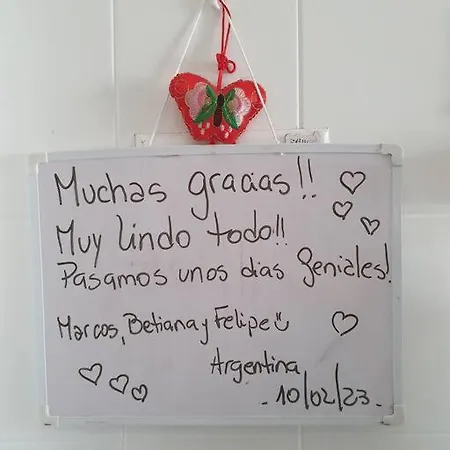 Muchas gracias!!
Muy lindo todo!!
Pasamos unos dias geniales!
Marcos, Betiana y Felipe
Argentina
- 10/02/23 -